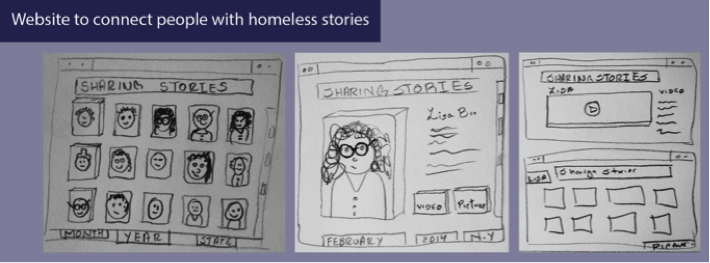 Website to connect people with homeless stories
SHARING STORIES
MONTH YEAR STATE
SHARING STORIES
Lisa Bio
VIDEO Picture
FEBRUARY 2014 N.Y
SHARING STORIES
LISA VIDEO
LISA